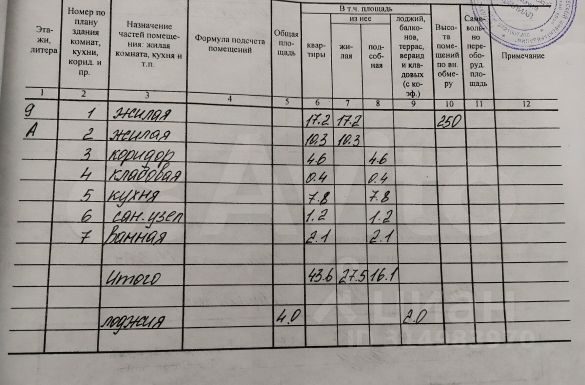 Эта-
жи,
литера
Номер по
плану
здания
комнат,
кухни,
корид. и
пр.
Назначение
частей помеще-
ния: жилая
комната, кухня и
т.п.
Формула подсчета
помещений
Общая
пло-
щадь
В т.ч. площадь
из нее
квар-
тиры
жи-
лая
под-
соб-
ная
лоджий,
балко-
нов,
террас,
веранд
и кла-
довых
(с ко-
эф.)
Высо-
та
поме-
щений
по вн.
обме-
ру
Само-
воль-
но
перео-
бо-
руд.
площадь
Примечание
1 2 3 4 5 6 7 8 9 10 11 12
9 1 жилая 17.2 17.2 250
А 2 жилая 10.3 10.3
3 коридор 4.6 4.6
4 кладовая 0.4 0.4
5 кухня 7.8 7.8
6 сан.узел 1.2 1.2
7 ванная 2.1 2.1
Итого 43.6 27.5 16.1
лоджия 4.0 2.0
Avito
циан